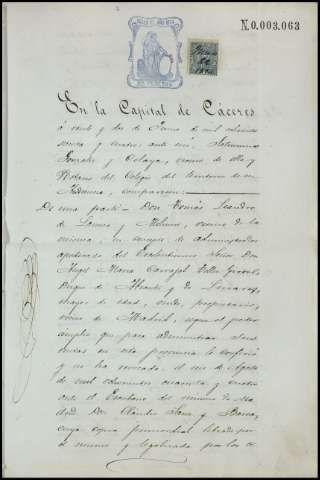 N.0.003.063
En la Capital de Cáceres
á veinte y dos de de mil ochocientos
y cuatro, ante mi,
Gonzalez y Celaya, vecino de ella y
Notario del Colegio del Territorio de su
comparecen:
De una parte Don Tomás Leandro
de y vecino de la
misma, en concepto de administrador
apoderado del Excelentísimo Señor Don
Angel Maria Carvajal Tellez Giron,
Duque de Abrantes y de Linares,
mayor de edad, viudo, propietario,
vecino de Madrid, segun el poder
ámplio que para administrar sus
rentas en esta provincia le confirió
y no ha revocado, el mes de Agosto
de mil ochocientos cuarenta y cuatro
ante el Escribano del número de Ma
drid Don Claudio Sanz y Barea,
cuya copia primordial librada por
el mismo y legalizada por los